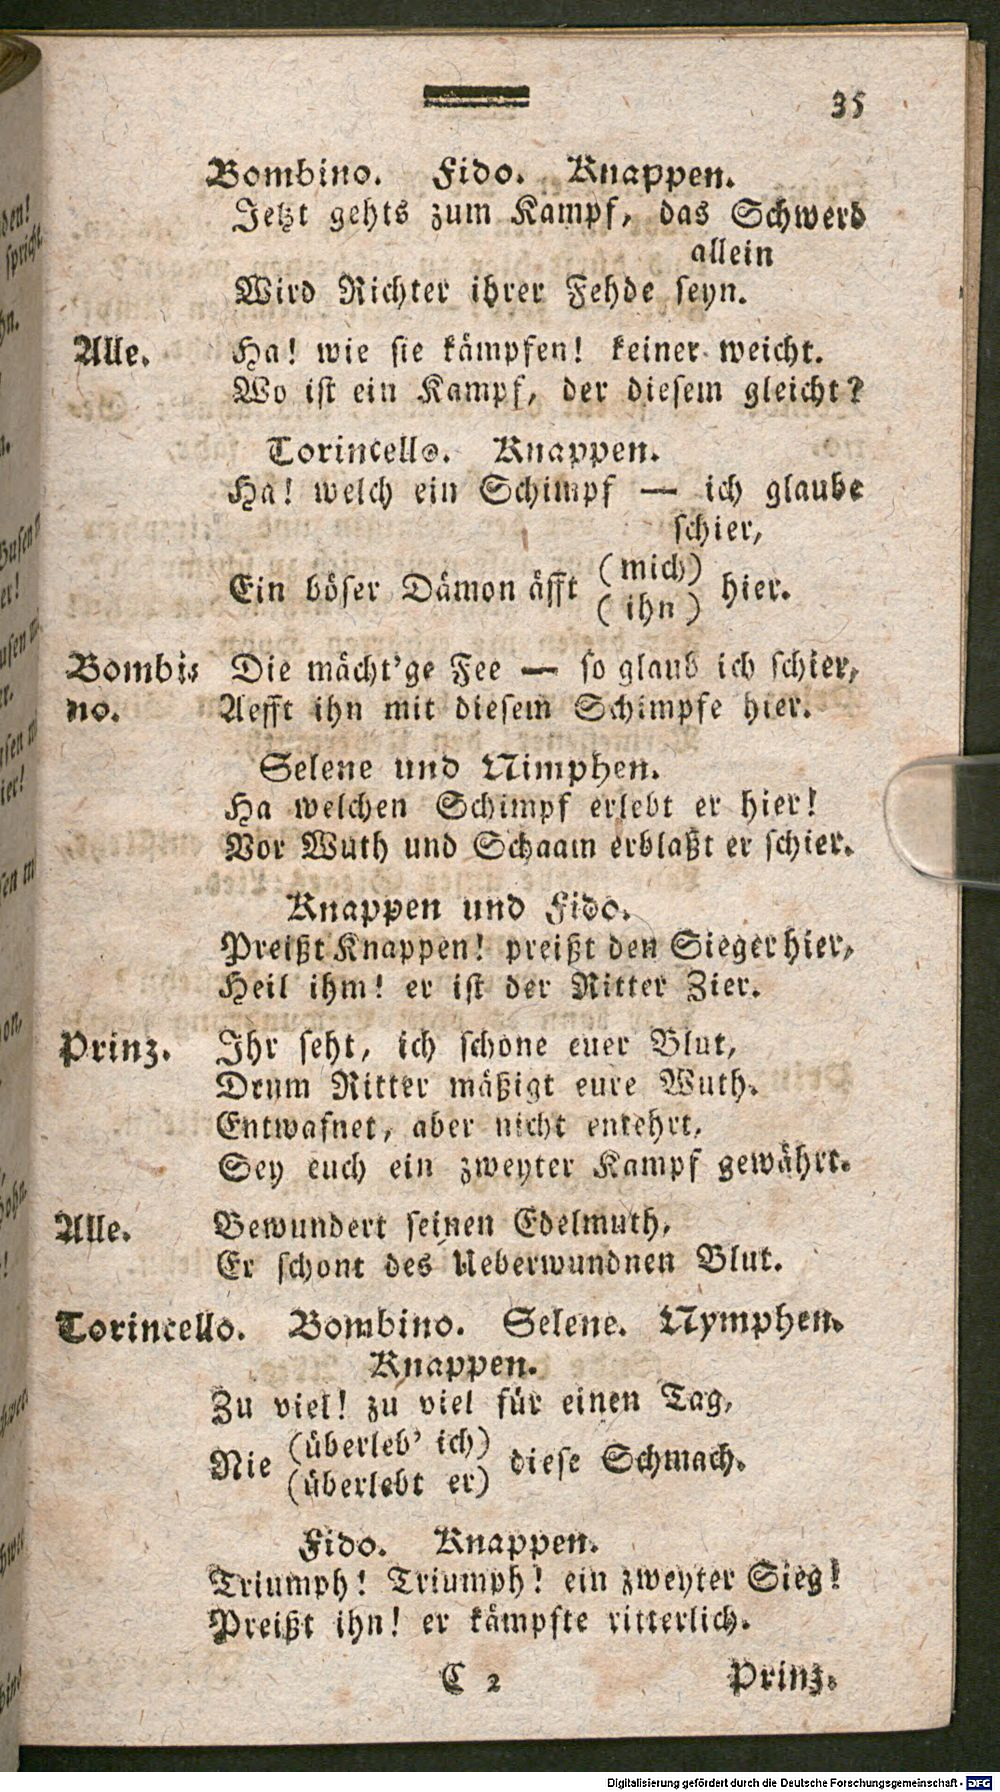 35
Bombino. Fido. Knappen.
Jetzt gehts zum Kampf, das Schwerd
allein
Wird Richter ihrer Fehde seyn.
Alle. Ha! wie sie kämpfen! keiner weicht.
Wo ist ein Kampf, der diesem gleicht?
Torincello. Knappen.
Ha! welch ein Schimpf — ich glaube
schier,
Ein böser Dämon äfft (mich) hier.
(ihn)
Bombi- Die mächt'ge Fee — so glaub ich schier,
no. Aefft ihn mit diesem Schimpfe hier.
Selene und Nimphen.
Ha welchen Schimpf erlebt er hier!
Vor Wuth und Schaam erblaßt er schier.
Knappen und Fido.
Preißt Knappen! preißt den Sieger hier,
Heil ihm! er ist der Ritter Zier.
Prinz. Ihr seht, ich schone euer Blut,
Drum Ritter mäßigt eure Wuth.
Entwafnet, aber nicht entehrt,
Sey euch ein zweyter Kampf gewährt.
Alle. Bewundert seinen Edelmuth,
Er schont des Ueberwundnen Blut.
Torincello. Bombino. Selene. Nymphen.
Knappen.
Zu viel! zu viel für einen Tag,
Nie (überleb' ich) diese Schmach.
(überlebt er)
Fido. Knappen.
Triumph! Triumph! ein zweyter Sieg!
Preißt ihn! er kämpfte ritterlich.
C 2 Prinz.
Digitalisierung gefördert durch die Deutsche Forschungsgemeinschaft - DFG